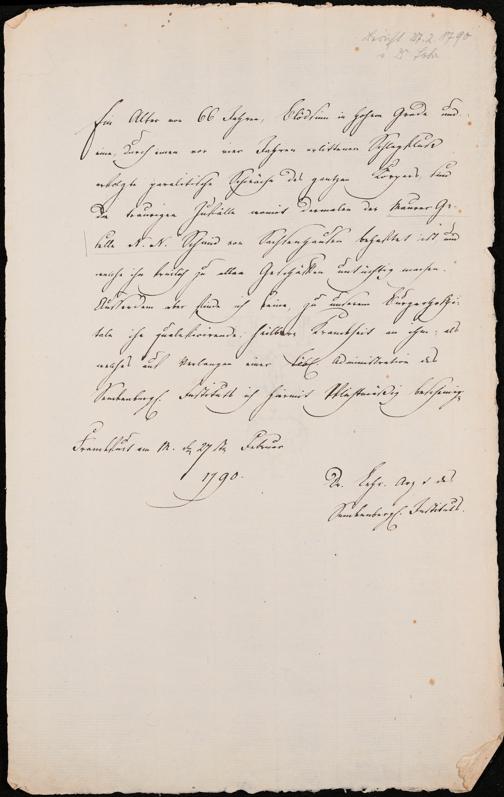 Bericht 27.2.1790
v. Dr
Ein Alter von 66 Jahren, Blödsinn in hohem Grade und
eine, durch einen vor vier Jahren erlittenen Schlagfluß
erfolgte paralitische Schwäche des gantzen Körpers, sind
die traurigen Zufälle womit dermalen der Maurer Ge-
selle N. N. Schmid von Sachsenhausen behaftet ist und
welche ihn gäntzlich zu allen Geschäften untüchtig machen.
Ausserdem aber finde ich keine, zu unserem Bürgerhospi-
tale ihn qualificirende, heilbare Krankheit an ihm; als
welches auf Verlangen einer löbl. Administration des
Senkenbergl. Instituts ich hiermit Pflichtmäsig bescheinige
Frankfurt am M. d. 27ten Februar
1790.
Dr. Lehr. Arzt des
Senkenbergl. Instituts.